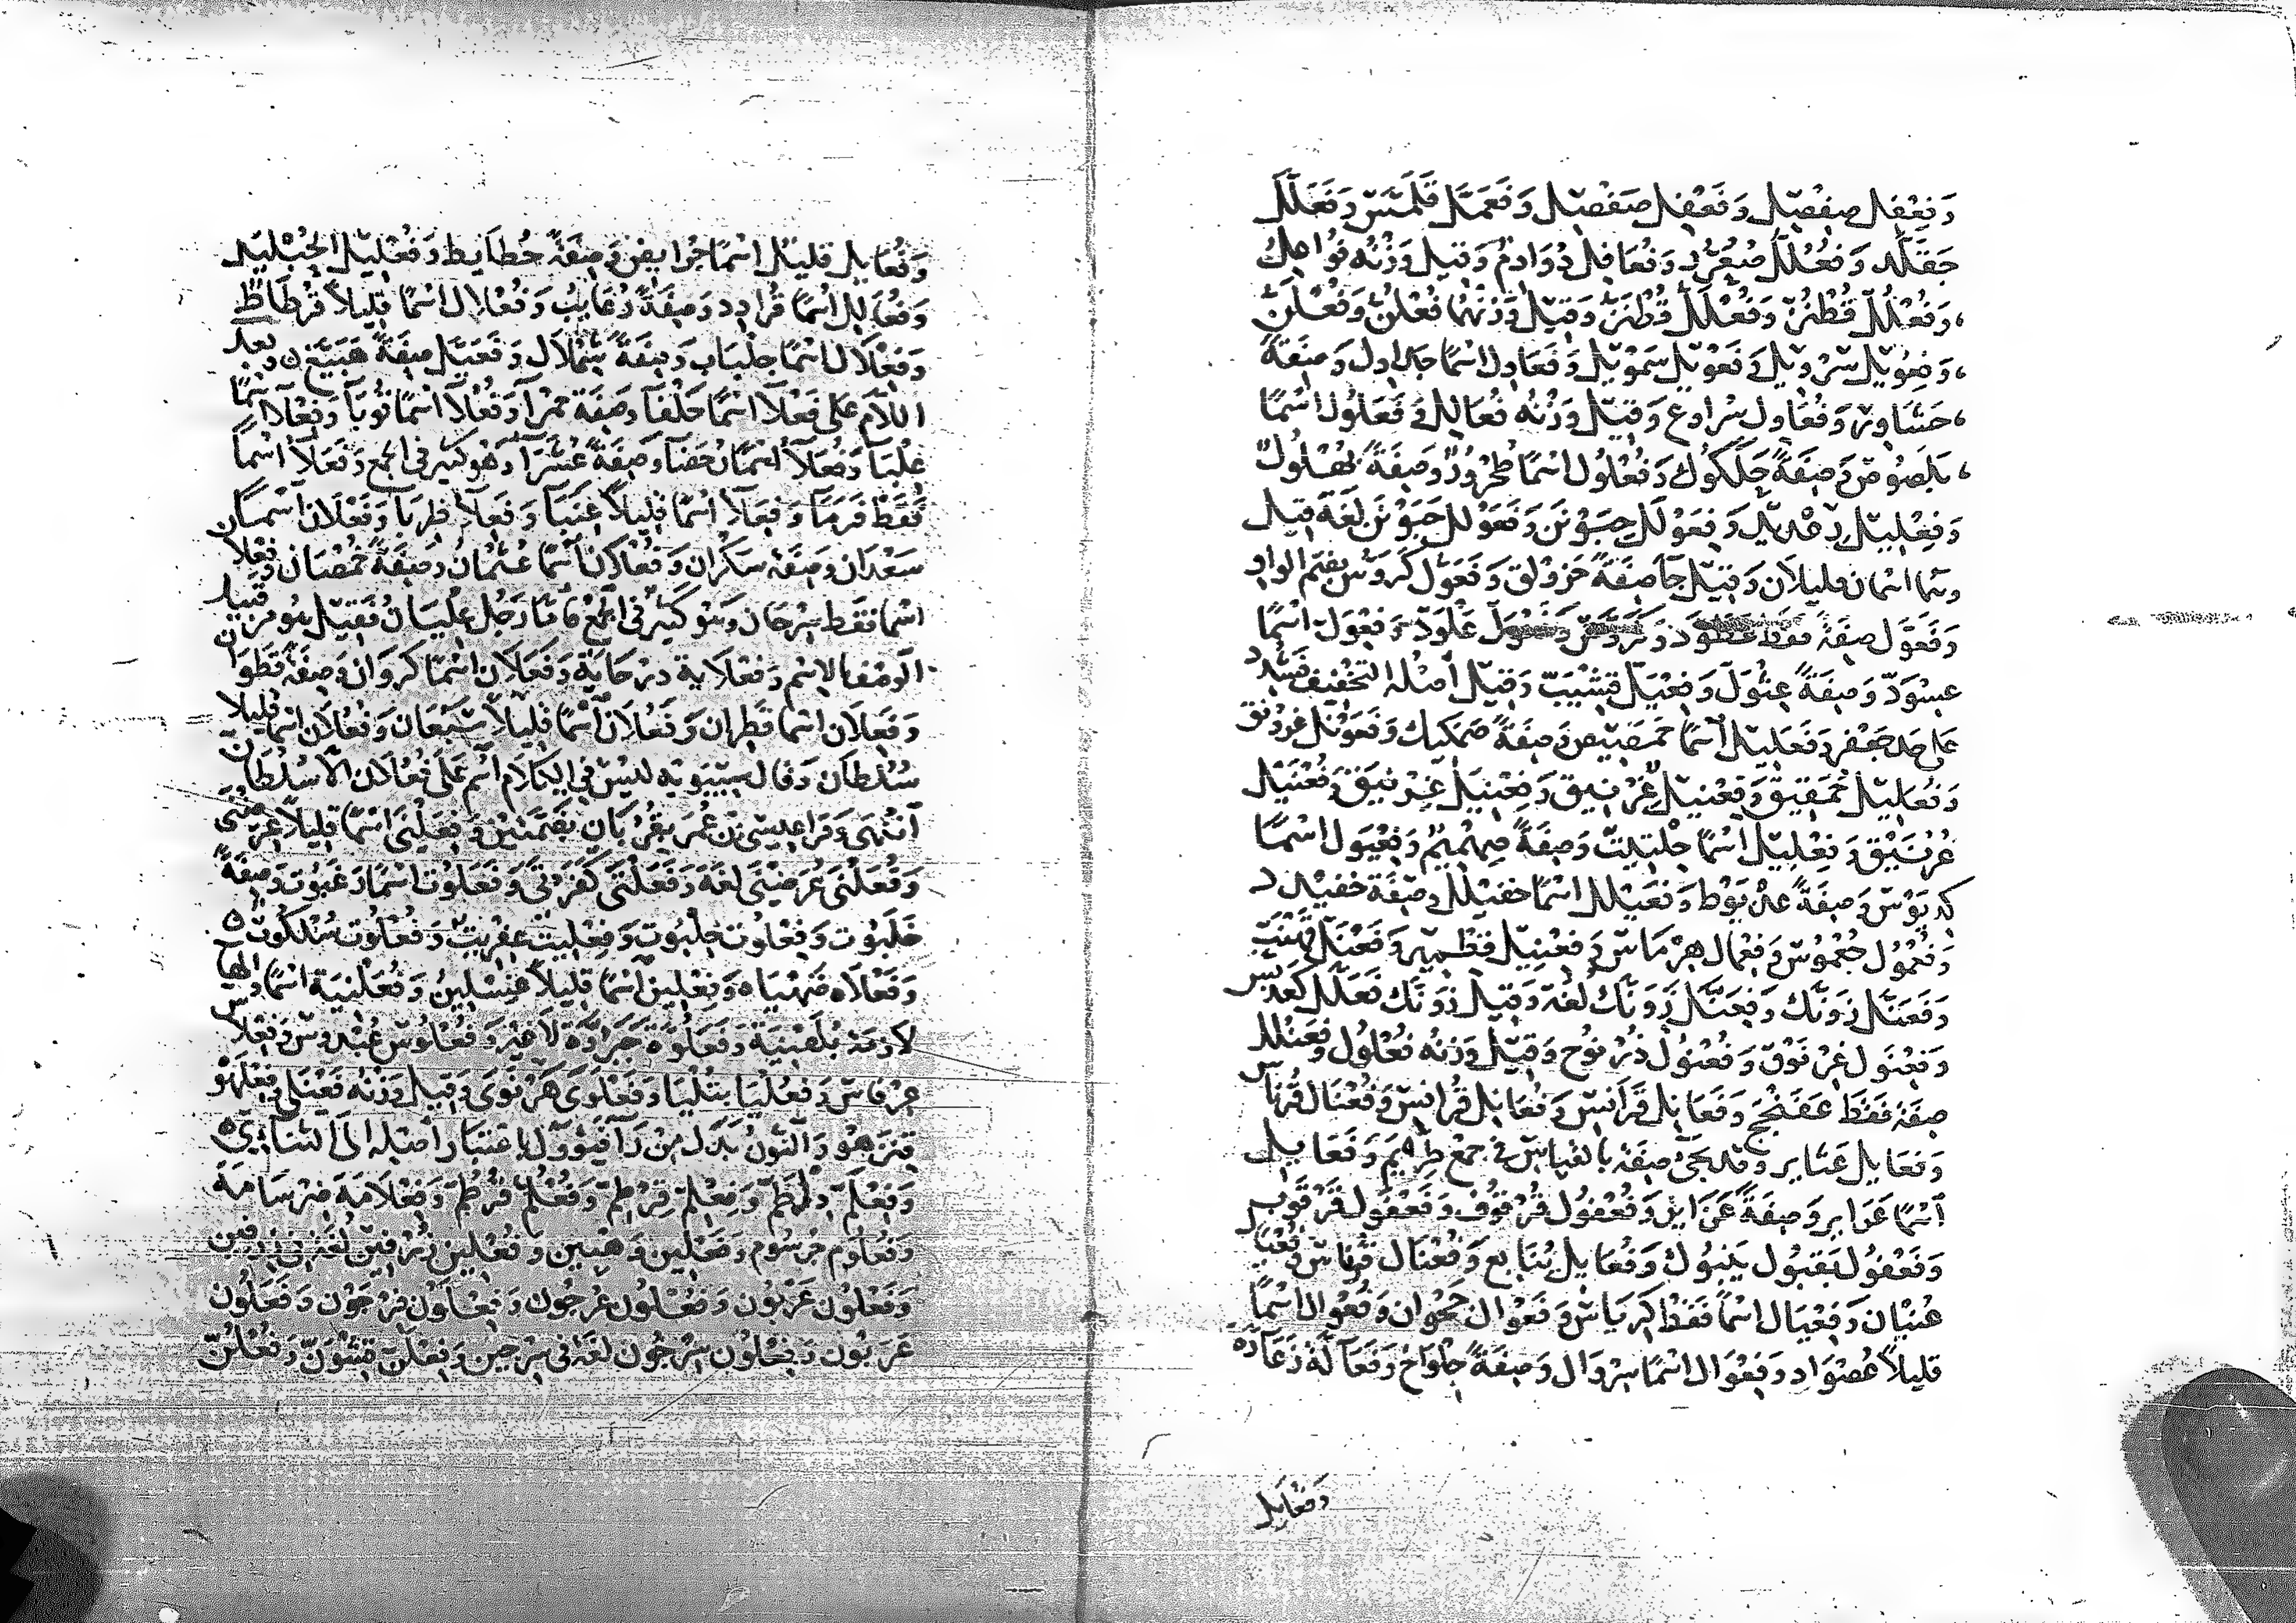 وَفِعْفِل صِفْصِل وَفَعْفِل صَفْصِل وَفَعَمَّل قَلَمَّس وَفَعَلَّل
وَفُعُلُّل صُعُرُّر وَفُعَافِل دُوَادِم وَقِيل وَزْنه فُوَاعِل
وَفُعْلُلّ قُطْنُنّ وَفُعْلَلّ قُطْنَنّ وَقِيل وَزْنهُمَا فُعْلُنّ وَفُعْلَنّ
وَفِعْوِيل سِرْوِيل وَفَعْوِيل سَمْوِيل وَفَعَاوِل اسْمًا جَدَاوِل وَصِفَةً
حَشَاوِر وَفُعَاوِل سُرَاوِع وَقِيل وَزْنه فُعَالِل وَفَعَلُول اسْمًا
بَلَصُوص وَصِفَةً حَلَكُوك وَفُعْلُول اسْمًا طُخْرُور وَصِفَةً بُهْلُول
وَفِعْلِيل وَفِعَوْلَل حِبَوْنَن وَفَعَوْلَل حَبَوْنَن لُغَة قِيل
وهما اسمان قليلان وَقِيل جَا صِفَةً حَزَوْلَق وَفَعَوُّل كَرَوُّس بضم الواو
وَفَعَوَّل صِفَة فقط عَطَوَّد وَكَرَوَّس عَلْوَدّ وَفِعْوَلّ اسْمًا
عِسْوَدّ وَصِفَةً عِثْوَلّ وَفِعْيَلّ قِسْيَبّ وَقِيل أَصْله التخفيف فشدد
على حد جَعْفَر وَفَعَلِيل اسْمًا حَمَصِيص وَصِفَةً صَمَكِيك وَفَعَوْنَل غَرَوْنَق
وَفُعَلِيل خُمَقِيق وَفِعْنِيل غِرْنِيق وَفِعْنَيْل غِرْنَيْق وَفُعْنَيْل
غُرْنَيْق وَفِعْلِيل اسْمًا حِلْتِيت وَصِفَةً صِهْمِيم وَفِعْيَوْل اسْمًا
كِدْيَوْس وَصِفَةً عِذْيَوْط وَفَعَيْلَل اسْمًا خَفَيْلَل وَصِفَة خَفَيْدَد
وَفُعْمُول جُعْمُوس وَفِعْمَال هِرْمَاس وَفِعْمِيل قِطْمِير وَفِعْنَلّ قِهْنَبّ
وَفَعَنَّل زَوَنَّك وَفِعَنَّل زِوَنَّك لُغَة وَقِيل زَوَنَّك فَعَلَّل كَعَدَبَّس
وَفِعْنَوْل غِرْنَوْق وَفُعْنُول ذُرْنُوح وَقِيل وَزْنه فُعْلُول وَفَعَنْلَل
صِفَة فَقَط عَفَنْجَج وَفَعَانِل قَرَانِس وَفُعَانِل قُرَانِس وَفُعْنَال قُرْنَاس
وَفَعَايِل عَثَايِر وقد يجيء صِفَة بالقياس في جمع طِرْيَم وَفَعَايِل
اسْمًا غَرَايِر وَصِفَةً عَزَايِز وَفُعْفُول قُرْقُوف وَفَعْفُول قَرْقُوب
وَفَعْفُول بَقْبُول يَنْبُوك وَفُعَايِل يُنَابِع وَفُعْنَال قُرْنَاس وَفُعْيَال
عُنْيَان وَفِعْيَال اسْمًا فَقَط كِرْيَاس وَفَعْوَال جَحْوَان وَفُعْوَال اسْمًا
قليلاً عُصْوَاد وَفِعْوَال اسْمًا سِرْوَال وَصِفَةً جِلْوَاخ وَفَعَالَّة زَعَارَّة
وَفُعَايِل
وَفُعَايِل قليلاً اسْمًا جُرَايِض وَصِفَةً حُطَايِط وَفُعْلَيِل الحُبْلَيِل
وَفُعَالِل اسْمًا قُرَادِد وَصِفَةً دُعَابِب وَفُعْلَال اسْمًا قليلاً قُرْطَاط
وَفِعْلَال اسْمًا جِلْبَاب وَصِفَةً شِمْلَال وَفَعَيَّل صِفَةً هَبَيَّخ وبعد
اللام على فَعْلَاء اسْمًا حَلْفَاء وَصِفَة حَمْرَاء وَفُعْلَاء اسْمًا قُوبَاء وَفِعْلَاء اسْمًا
عِلْبَاء وَفُعَلَاء اسْمًا رُحَضَاء وَصِفَةً عُشَرَاء وهو كثير في الجمع وَفَعَلَاء اسْمًا
فقط فَرَمَاء وَفِعَلَاء اسْمًا قليلاً عِنَبَاء وَفَعِلَاء ظَرِبَاء وَفَعْلَان اسْمًا
سَعْدَان وَصِفَة سَكْرَان وَفُعْلَان اسْمًا عُثْمَان وَصِفَةً خُمْصَان وَفِعْلَان
اسْمًا فقط سِرْحَان وهو كثير في الجمع فأما رَجُل عِلْيَان فقيل هو من قبيل
الوصف بالاسم وَفِعْلَايَة دِرْحَايَة وَفَعَلَان اسْمًا كَرَوَان وَصِفَة قَطَوَان
وَفَعِلَان اسْمًا قَطِرَان وَفَعُلَان اسْمًا قليلاً سَبُعَان وَفُعُلَان اسْمًا قليلاً
سُلُطَان وقال سيبويه ليس في الكلام اسم على فُعُلَان الا سُلُطَان
انتهى وقرأ عيسى بن عمر بقُرُبَان بضمتين وَفِعَلْنَى اسْمًا قليلاً عِرَضْنَى
وَفُعَلْنَى عُرَضْنَى لُغَة وَفَعَلْنَى كَفَرْنَى وَفَعَلُوت اسْمًا رَغَبُوت وَصِفَةً
خَلَبُوت وَفِعْلُوت خِلْبُوت وَفِعْلِيت عِفْرِيت وَفُعْلُوت سُلْكُوت
وَفَعْلَاه ضَهْيَاه وَفِعْلِين اسْمًا قليلاً غِسْلِين وَفُعَلْنِيَة اسْمًا والهاء
لازمة بُلَهْنِيَة وَفَعَلُوَّة جَبَرُوَّة لا غير وَفُعْلُوس عُبْدُوس وَفِعْلَاس
عِرْفَاس وَفَعْلَوَى هَرْنَوَى وَقِيل وَزْنه فَعْنَلَى وَفِعْلَهْو
قِنْزَهْو والنون بدل من راء فيؤول باعتبار أصله إلى الثنائي
وَفِعْلَمّ دِلْظَمّ وَفِعْلِمّ قِرْطِمّ وَفُعْلُمّ قُرْطُمّ وَفِعْلَامَة ضِرْسَامَة
وَفُعْلُوم جُرْسُوم وَفِعْلِين وَهِبِين وَفُعْلِين زُرْفِين لُغَة في زِرْفِين
وَفَعْلُون عَرْبُون وَفُعْلُون عُرْجُون وَفِعْلَوْن فِرْجَوْن وَفَعَلُون
عَرَبُون وَفِعْلُون سِرْجُون لُغَة في سِرْجِين وَفِعْلَنّ قِشْوَنّ وَفُعْلُنّ